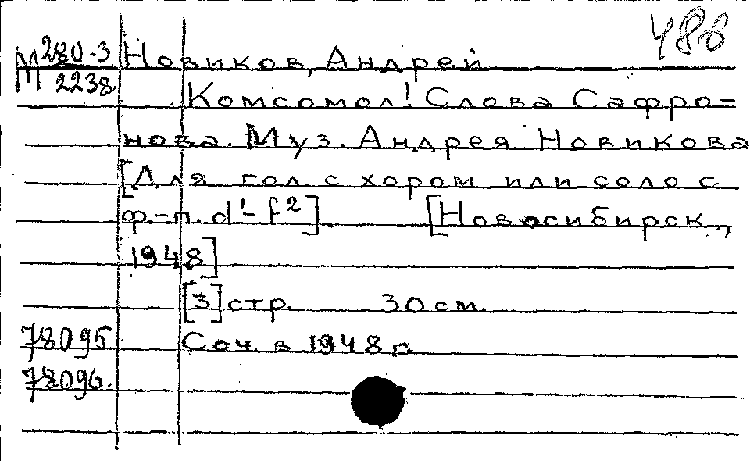 486
М 280-3 Новиков, Андрей
2238 Комсомол! Слова Сафро-
нова. Муз. Андрея Новикова
[Для гол. с хором или соло с
ф.-п. d¹-f²] [Новосибирск,
1948]
[3] стр. 30 см.
78095 Соч. в 1948 г.
78096.